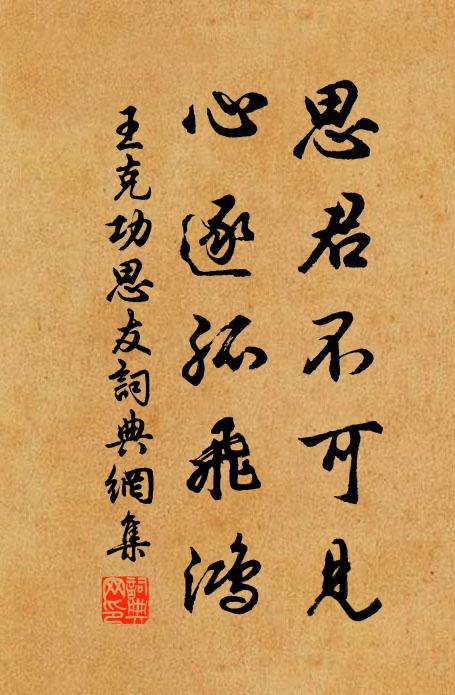 思君不可見
心逐孤飛鴻
王克功思友詞典網集
詞典
网印